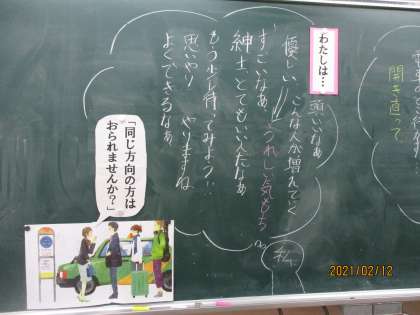 わたしは…
優しい
こんな人が増えていく
すごいなぁ
うれしい気もち
紳士、とてもいい人だなぁ
もう少し待ってみよう…
思いやり
やりますね
よくできるなぁ
私
開き直って
「同じ方向の方は
おられませんか?」
2021/02/12